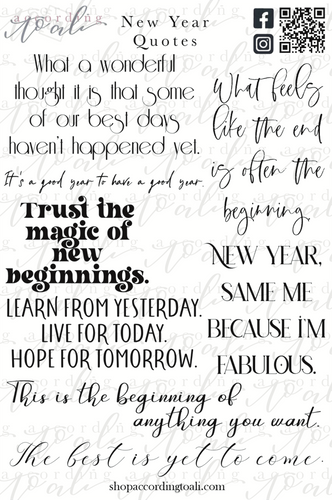 according
to ali
New Year
Quotes
What a wonderful
thought it is that some
of our best days
haven't happened yet.
It's a good year to have a good year.
Trust the
magic of
new
beginnings.
LEARN FROM YESTERDAY.
LIVE FOR TODAY.
HOPE FOR TOMORROW.
What feels
like the end
is often the
beginning.
NEW YEAR,
SAME ME
BECAUSE I'M
FABULOUS.
This is the beginning of
anything you want.
The best is yet to come.
shopaccordingtoali.com